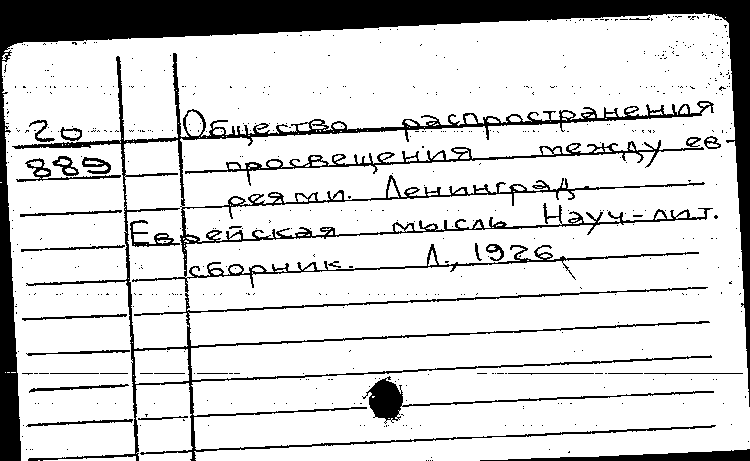 20 Общество распространения
889 просвещения между ев-
реями. Ленинград.
Еврейская мысль Науч-лит.
сборник. Л., 1926.